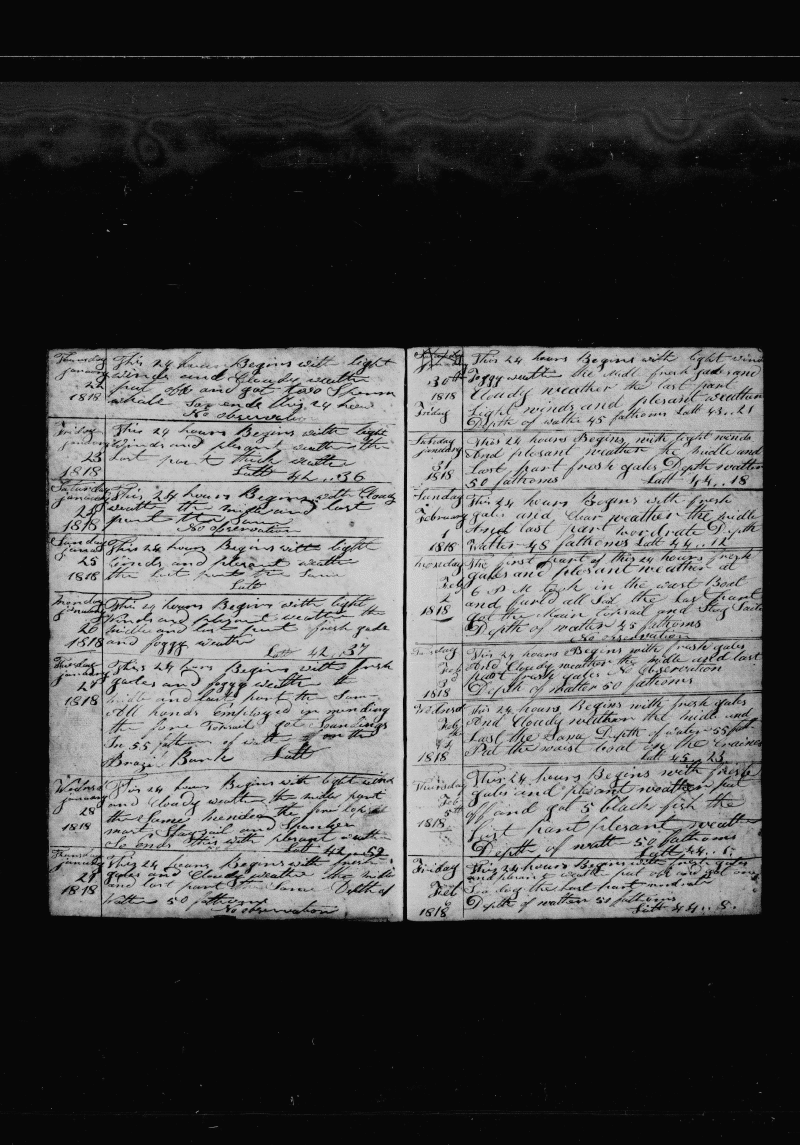 Thursday January 22 1818
This 24 hours Begins with light
winds and Cloudy weather
put off and got two Sperm
whale So ends this 24 hours
No observation
Friday January 23 1818
This 24 hours Begins with light
Winds and plesent weather the
Last part thick weather
Latt 42..36
Saturday January 24 1818
This 24 hours Begins with Cloudy
weath the midd and last
part the Same
No observation
Sunday 25 1818
This 24 hours Begins with light
winds and plesent weather
the last part the Same
Latt
Monday January 26 1818
This 24 hours Begins with light
Winds and plesent weather the
midle and last part fresh gale
and foggy weather
Latt 42..37
Tuesday January 27 1818
This 24 hors Begins with fresh
gales and foggy weather the
midle and last part the Same
All hands Employed in mending
the fore Topsail got Soundings
In 55 fathom of watter on the
Brazil Bank Latt
Wednesd January 28 1818
This 24 hours Begins with light wind
and Cloudy weather the midle part
the Same mended the fore
Staysail and Spanker
So ends this with plesent weath
Latt 42..52
Thursday January 29 1818
This 24 hours Begins with fresh
gales and Cloudy weather the midle
and last part the Same Depth of
Watter 50 fathoms
No observation
30th 1818 Friday
This 24 hours Begins with light wind
Foggy weath the Midl fresh gales and
Cloudy weather the last part
Light winds and plesant weather
Depth of watter 45 fathoms Latt 43..21
Saturday January 31 1818
This 24 hours Begins with light winds
And plesent weather the midle and
Last part fresh gales Depth watter
50 fathoms Latt 44..18
Sunday February 1 1818
This 24 hours Begins with fresh
gales and Clear weather the midle
And last part modrate Depth
Watter 48 fathoms Latt 44..12
Monday Feb 2 1818
The first part of this 24 hours fresh
gales and plesent weather at
6 P M took in the wast Boat
and furld all Sail the last part
got the Main Topsail and Stay Sails
Depth of watter 45 fathoms
No observation
Tuesday Feb 3d 1818
This 24 hours Begins with fresh gales
And Cloudy weather the midle and last
part fresh gales No Observation
Depth of watter 50 fathoms
Wednesd Feb 4 1818
This 24 hours Begins with fresh gales
And Cloudy weather the midle and
Last the Same Depth of water 55 fath
Put the waist boat on the Craines
Latt 45..23
Thursday Feb 5th 1818
This 24 hours Begins with fresh
gales and plesant weather put
off and got 5 black fish the
Last part plesant weather
Depth of watt 50 fathoms
Latt 44..6
Friday Feb 6 1818
This 24 hours Begins with fresh gales
and plesent weather put off and got one
Sea dog the last part modrate
Depth of watter 51 fathoms
Latt 44..8